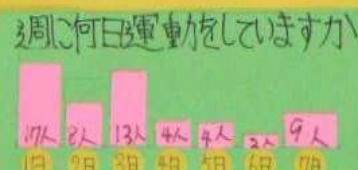 週に何日運動をしていますか
17人 8人 13人 4人 4人 2人 9人
1日 2日 3日 4日 5日 6日 7日